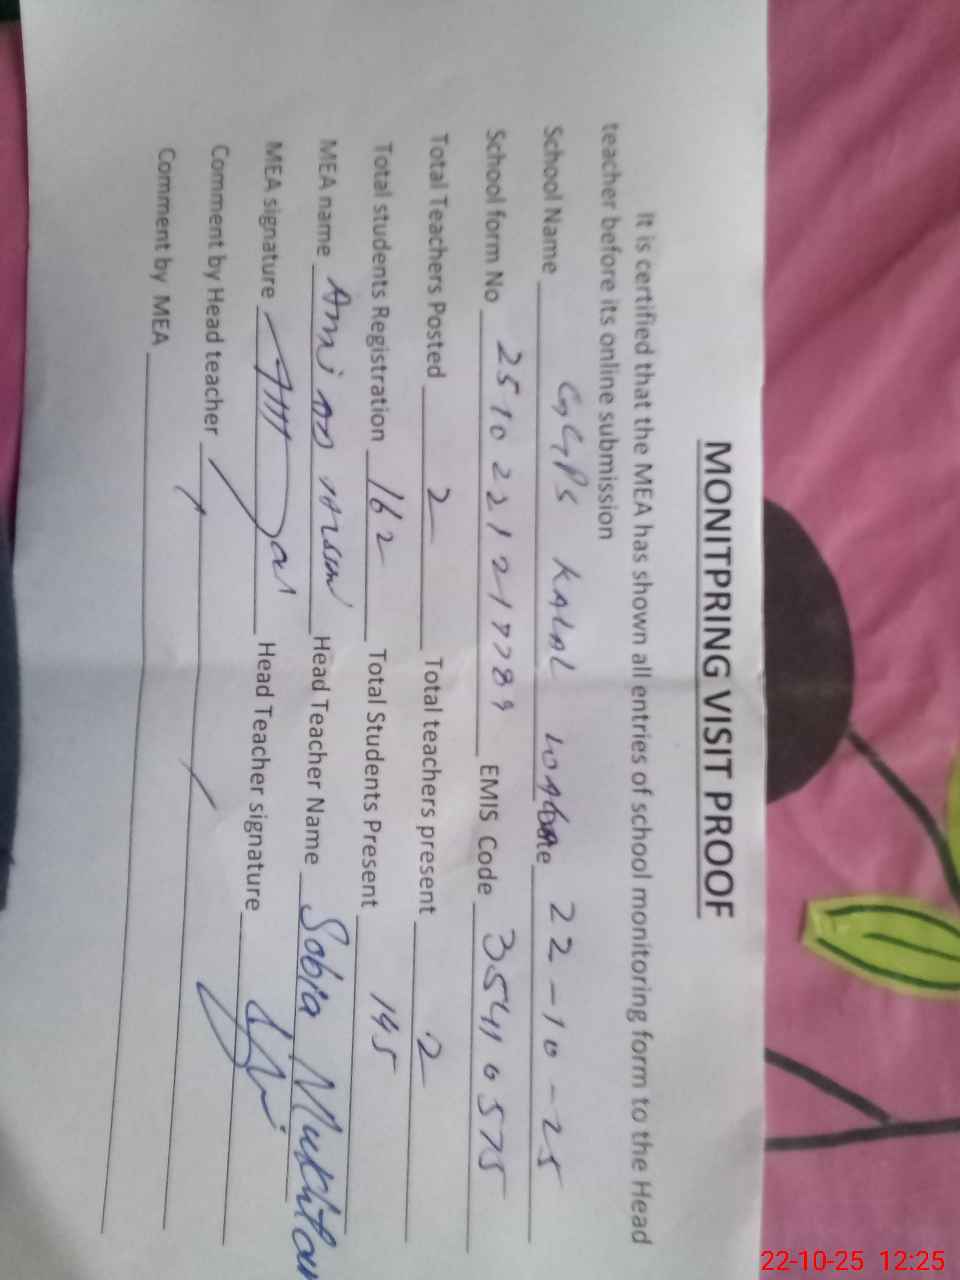 MONITPRING VISIT PROOF
It is certified that the MEA has shown all entries of school monitoring form to the Head
teacher before its online submission
School Name GGPS KALAL Date 22-10-25
School form No EMIS Code 35410575
Total Teachers Posted 2 Total teachers present 2
Total students Registration 162 Total Students Present 145
MEA name Head Teacher Name Sobia Mukhtar
MEA signature Head Teacher signature
Comment by Head teacher
Comment by MEA
22-10-25 12:25